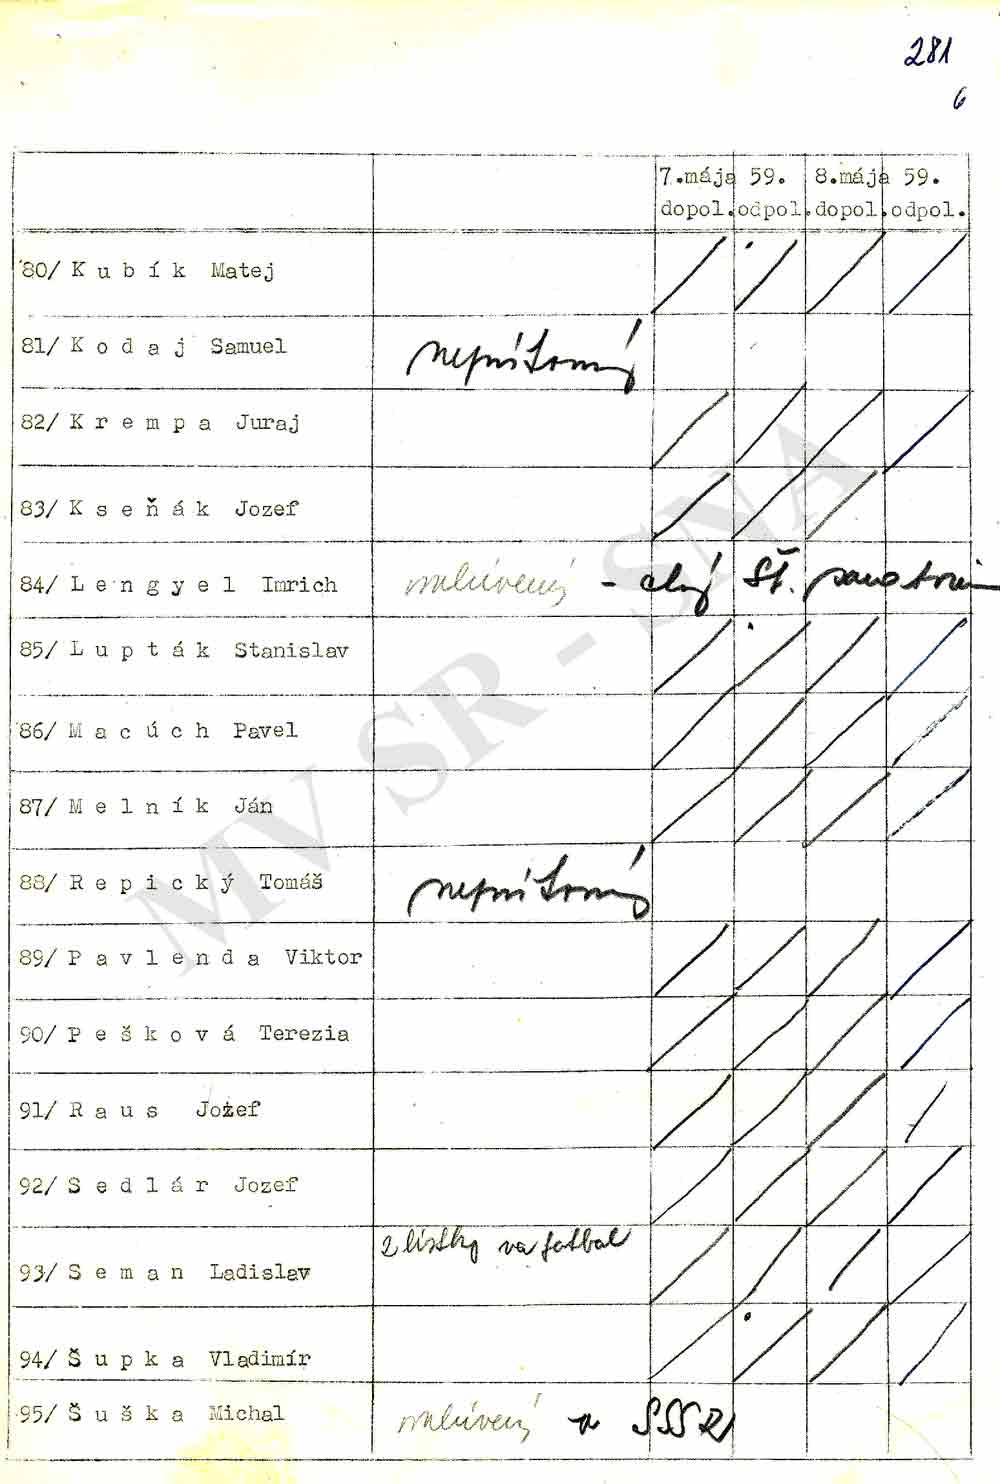 281
6
7.mája 59. 8.mája 59.
dopol. odpol. dopol. odpol.
80/ K u b í k Matej
81/ K o d a j Samuel neprítomný
82/ K r e m p a Juraj
83/ K s e ň á k Jozef
84/ L e n g y e l Imrich mlúvený - chorý Št.
85/ L u p t á k Stanislav
86/ M a c ú c h Pavel
87/ M e l n í k Ján
88/ R e p i c k ý Tomáš neprítomný
89/ P a v l e n d a Viktor
90/ P e š k o v á Terezia
91/ R a u s Jožef
92/ S e d l á r Jozef
2 lístky na fotbal
93/ S e m a n Ladislav
94/ Š u p k a Vladimír
95/ Š u š k a Michal mlúvený SSSR
MV SR - SNA